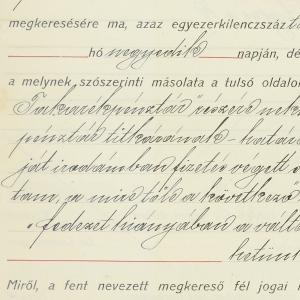 megkeresésére ma, azaz egyezerkilenczszáz
hó negyedik napján, dé
a melynek szószerinti másolata a tulsó oldalo
Takarékpénztár részére
pénztár titkárának - határ
ját irodámban fizetés végett
tam, a mire tőle a következő
fedezet hiányában a vált
hetünk
Miről, a fent nevezett megkereső fél jogai